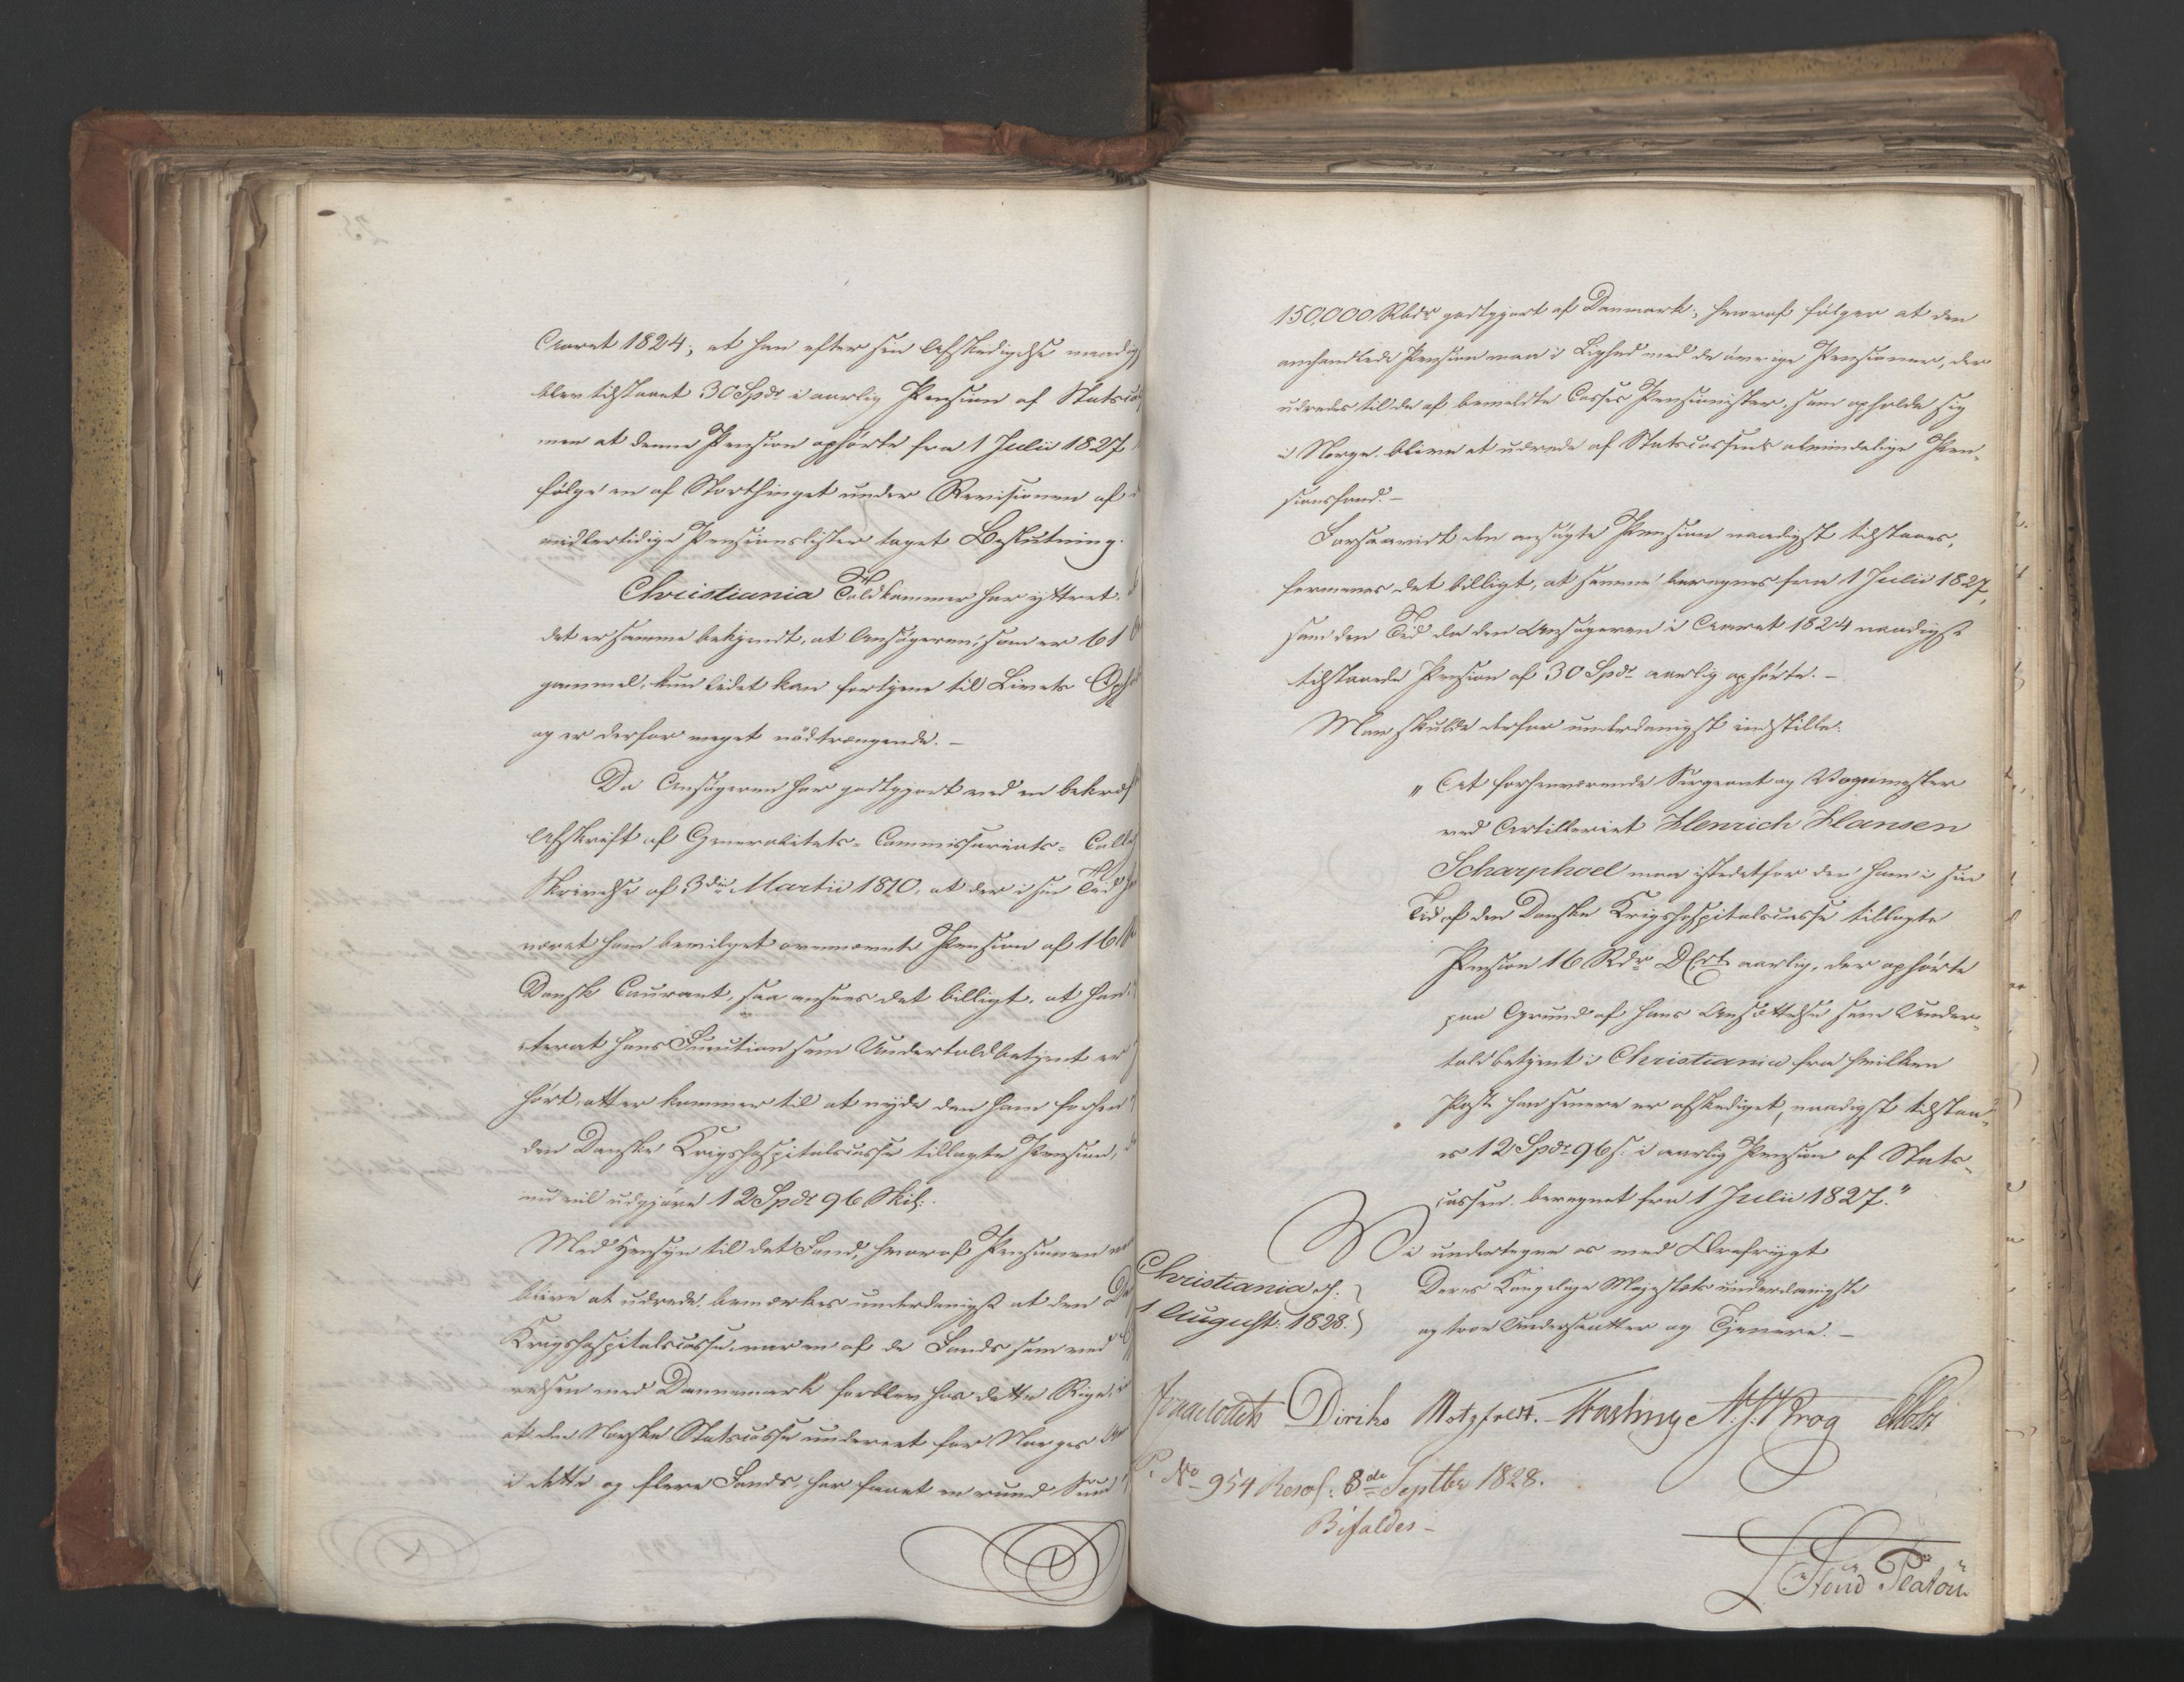 Aaret 1824, at han efter sin Afskedigelse naadig
blev tilstaaet 30 Spdr i aarlig Pension af Statsca
men at denne Pension ophørte fra 1 Julii 1827
følge en af Storthinget under Revisionen af
midlertidige Pensionslister taget Beslutning.
Christiania Toldkammer har yttret,
det er samme bekjendt, at Ansøgeren, som er 61
gammel, kun lidet kan fortjene til Livets Oph
og er derfor meget nødtrængende. –
Da Ansøgeren har godtgjort ved en bekræf
Afskrift af Generalitets- Commissariats- Colle
Skrivelse af 3die Martii 1810, at der i sin Tid
været ham bevilget ovennævnte Pension af 16
Dansk Courant, saa ansees det billigt, at han
efterat hans Function som Undertoldbetjent er
hørt, atter kommer til at nyde den ham forhen
den Danske Krigshospitalscasse tillagte Pension,
nu vil udgjøre 12 Spdr 96 Skil:.
Med Hensyn til det Fond, hvoraf Pensionen
blive at udrede, bemærkes underdanigst at den Da
Krigshospitalscasse, var en af de Fonds som ved
relsen med Dannemark forblev hos dette Rige,
at den Norske Statscasse underret for Norges
i dette og flere Fonds, har faaet en rund Sum
150,000 Rbdr godtgjort af Danmark, hvoraf følger at den
omhandlede Pension maa i Lighed med de øvrige Pensioner, der
udredes til de af bemeldte Casses Pensionister, som opholde sig
i Norge, blive at udrede af Statscassens almindelige Pen-
sionsfond. –
Forsaavidt den ansøgte Pension naadigst tilstaaes,
formenes det billigt, at samme beregnes fra 1 Julii 1827,
som den Tid da den Ansøgeren i Aaret 1824 naadigst
tilstaaede Pension af 30 Spdr aarlig ophørte. –
Man skulde derfor underdanigst indstille:
"At forhenværende Sergeant og Vognmester
ved Artilleriet Henrich Hansen
Scharphoel maa istedetfor den ham i sin
Tid af den Danske Krigshospitalscasse tillagte
Pension 16 Rdr D Crt aarlig, der ophørte
paa Grund af hans Ansættelse som Under-
toldbetjent i Christiania fra hvilken
Post han senere er afskediget, naadigst tilstaa-
es 12 Spdr 96 s. i aarlig Pension af Stats-
cassen, beregnet fra 1 Julii 1827."
Vi undertegne os med Ærefrygt
Deres Kongelige Majestæts underdanigste
og troe Undersaatter og Tjenere. –
Christiania d.
1 August. 1828.
Diriks Motzfeldt. Fasting A. J. Krog
No 954 Resol: 8de Septbr 1828.
Bifaldes –